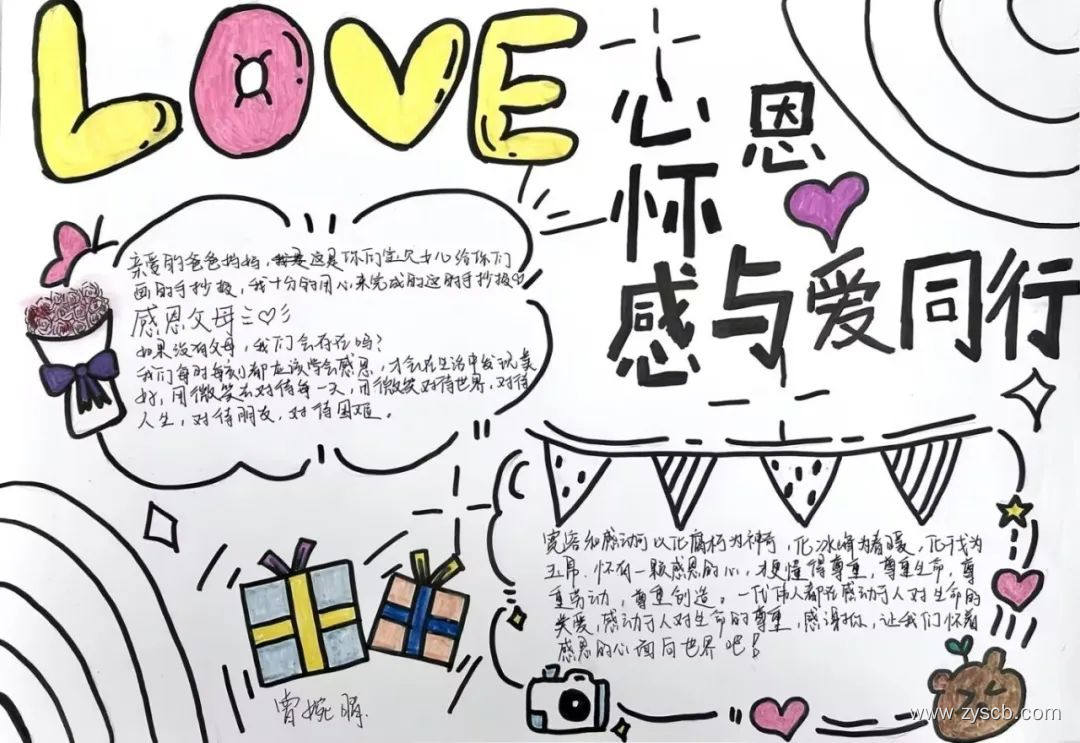 LOVE
心怀感恩
与爱同行
亲爱的爸爸妈妈，这是你们宝贝女儿给你们
画的手抄报，我十分的用心来完成的这的手抄报♡
感恩父母三♡彡
如果没有父母，我们会存在吗？
我们每时每刻都应该学会感恩，才会在生活中发现美
好，用微笑去对待每一天，用微笑对待世界，对待
人生，对待朋友，对待困难。
宽容和感动可以化腐朽为神奇，化冰峰为春暖，化干戈为
玉帛．怀有一颗感恩的心，才更懂得尊重，尊重生命，尊
重劳动，尊重创造。一代伟人都在感动于人对生命的
关爱，感动于人对生命的尊重，感谢，让我们怀着
感恩的心面向世界吧！
曾婉
www.zyscb.com